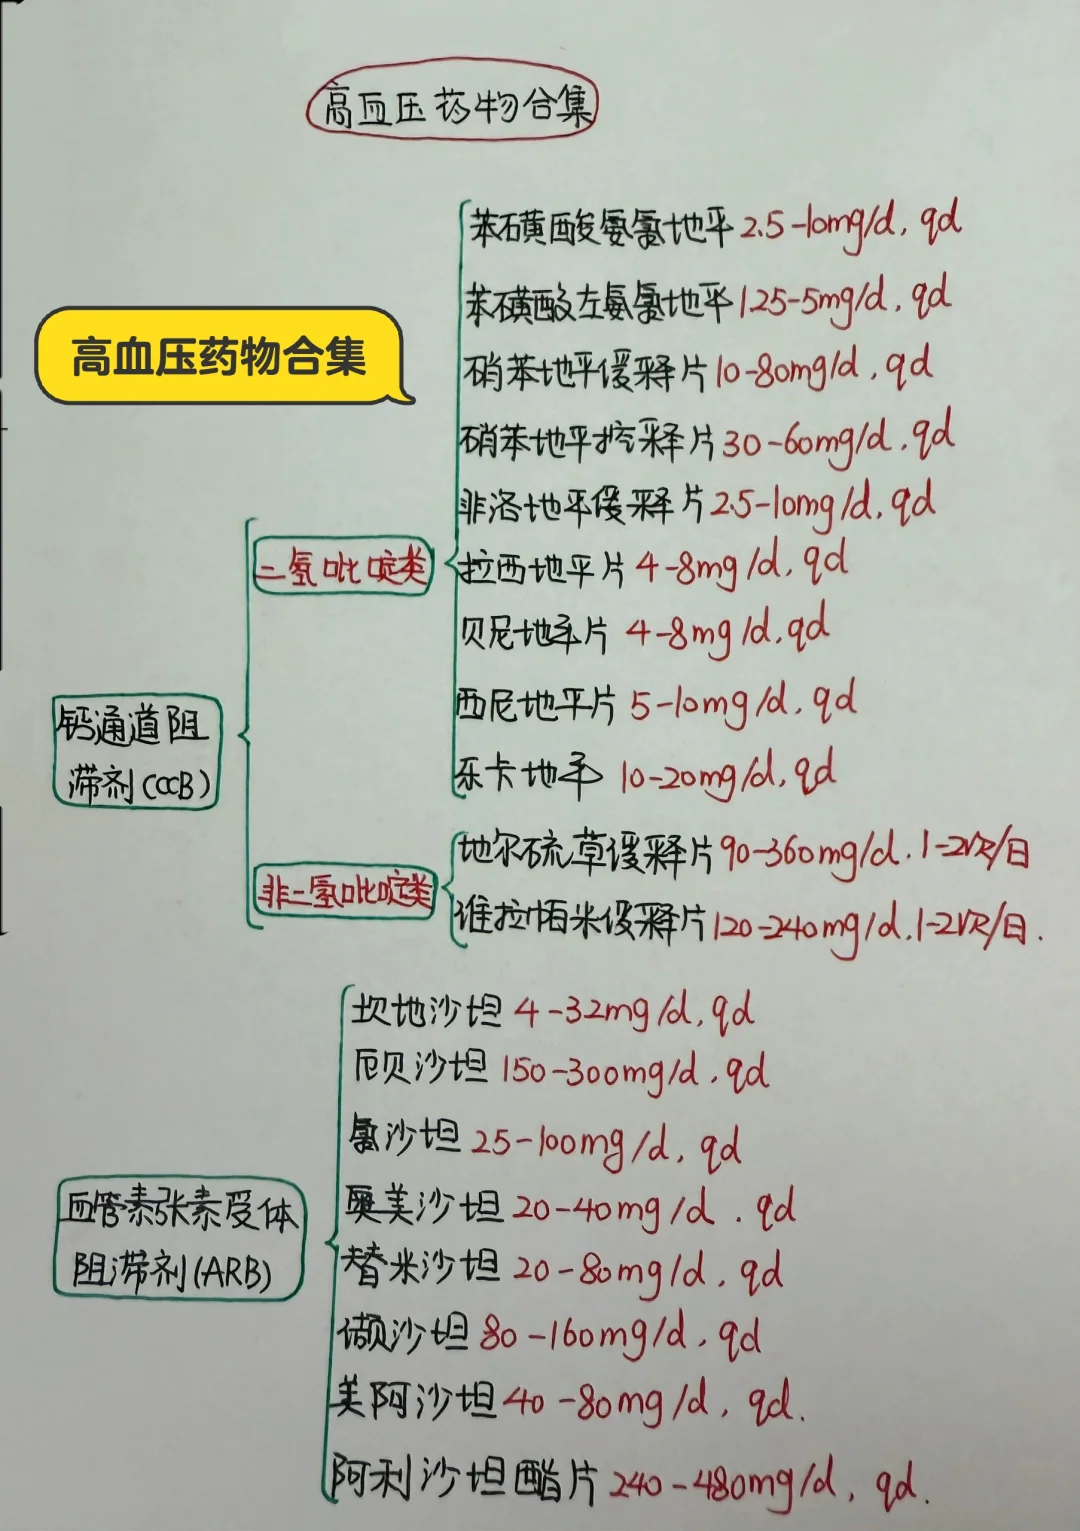 高血压药物合集
高血压药物合集
苯磺酸氨氯地平 2.5-10mg/d, qd
苯磺酸左氨氯地平 1.25-5mg/d, qd
硝苯地平缓释片 10-80mg/d, qd
硝苯地平控释片 30-60mg/d, qd
非洛地平缓释片 2.5-10mg/d, qd
二氢吡啶类
拉西地平片 4-8mg/d, qd
贝尼地平片 4-8mg/d, qd
西尼地平片 5-10mg/d, qd
乐卡地平 10-20mg/d, qd
钙通道阻
滞剂(CCB)
地尔硫䓬缓释片 90-360mg/d. 1-2次/日
非二氢吡啶类
维拉帕米缓释片 120-240mg/d. 1-2次/日.
坎地沙坦 4-32mg/d, qd
厄贝沙坦 150-300mg/d, qd
氯沙坦 25-100mg/d, qd
奥美沙坦 20-40mg/d. qd
血管紧张素受体
阻滞剂(ARB)
替米沙坦 20-80mg/d, qd
缬沙坦 80-160mg/d, qd
美阿沙坦 40-80mg/d, qd.
阿利沙坦酯片 240-480mg/d, qd.